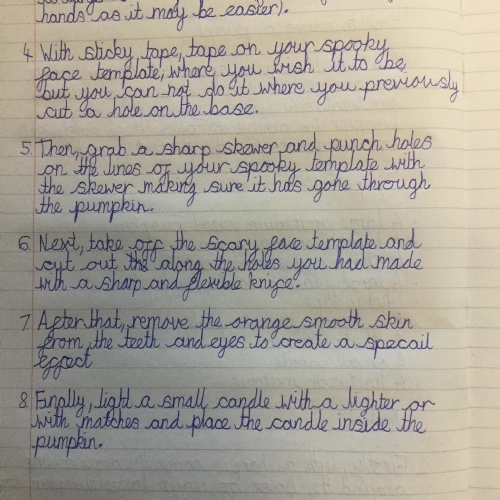 hands as it may be easier).
4. With sticky tape, tape on your spooky
face template, where you wish it to be,
but you can not do it where you previously
cut a hole on the base.
5. Then, grab a sharp skewer and punch holes
on the lines of your spooky template with
the skewer making sure it has gone through
the pumpkin.
6. Next, take off the scary face template and
cut out along the holes you had made
with a sharp and flexible knife.
7. After that, remove the orange smooth skin
from the teeth and eyes to create a specail
effect
8. Finally, light a small candle with a lighter or
with matches and place the candle inside the
pumpkin.